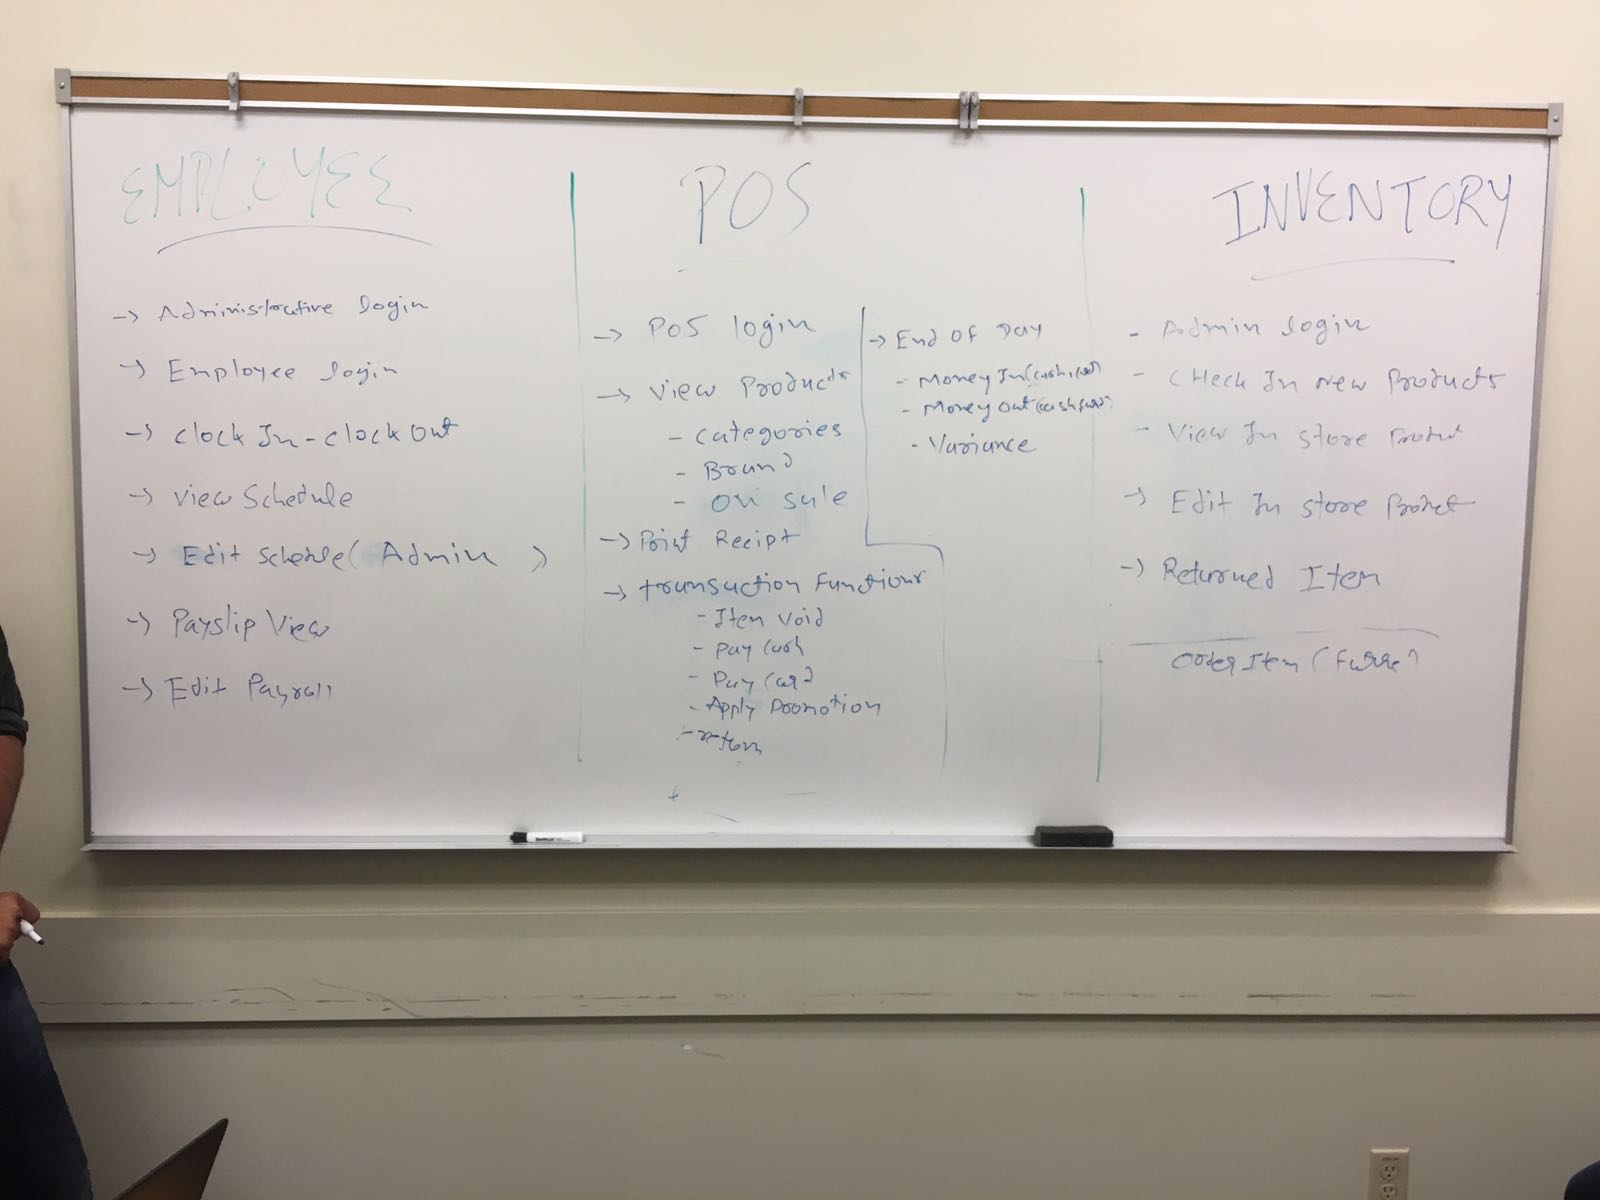 EMPLOYEE
-> Administrative login
-> Employee login
-> Clock In - Clock Out
-> View Schedule
-> Edit Schedule ( Admin )
-> Payslip View
-> Edit Payroll
POS
-> POS login
-> View Products
- Categories
- Brand
- On sale
-> Print Recipt
-> transaction Functions
- Item Void
- Pay Cash
- Pay Card
- Apply Promotion
- return
-> End Of Day
- Money In (cash, card)
- Money Out (cash, card)
- Variance
INVENTORY
- Admin login
- CHeck In New Products
- View In store Product
-> Edit In store Product
-> Returned Item
Order Item (